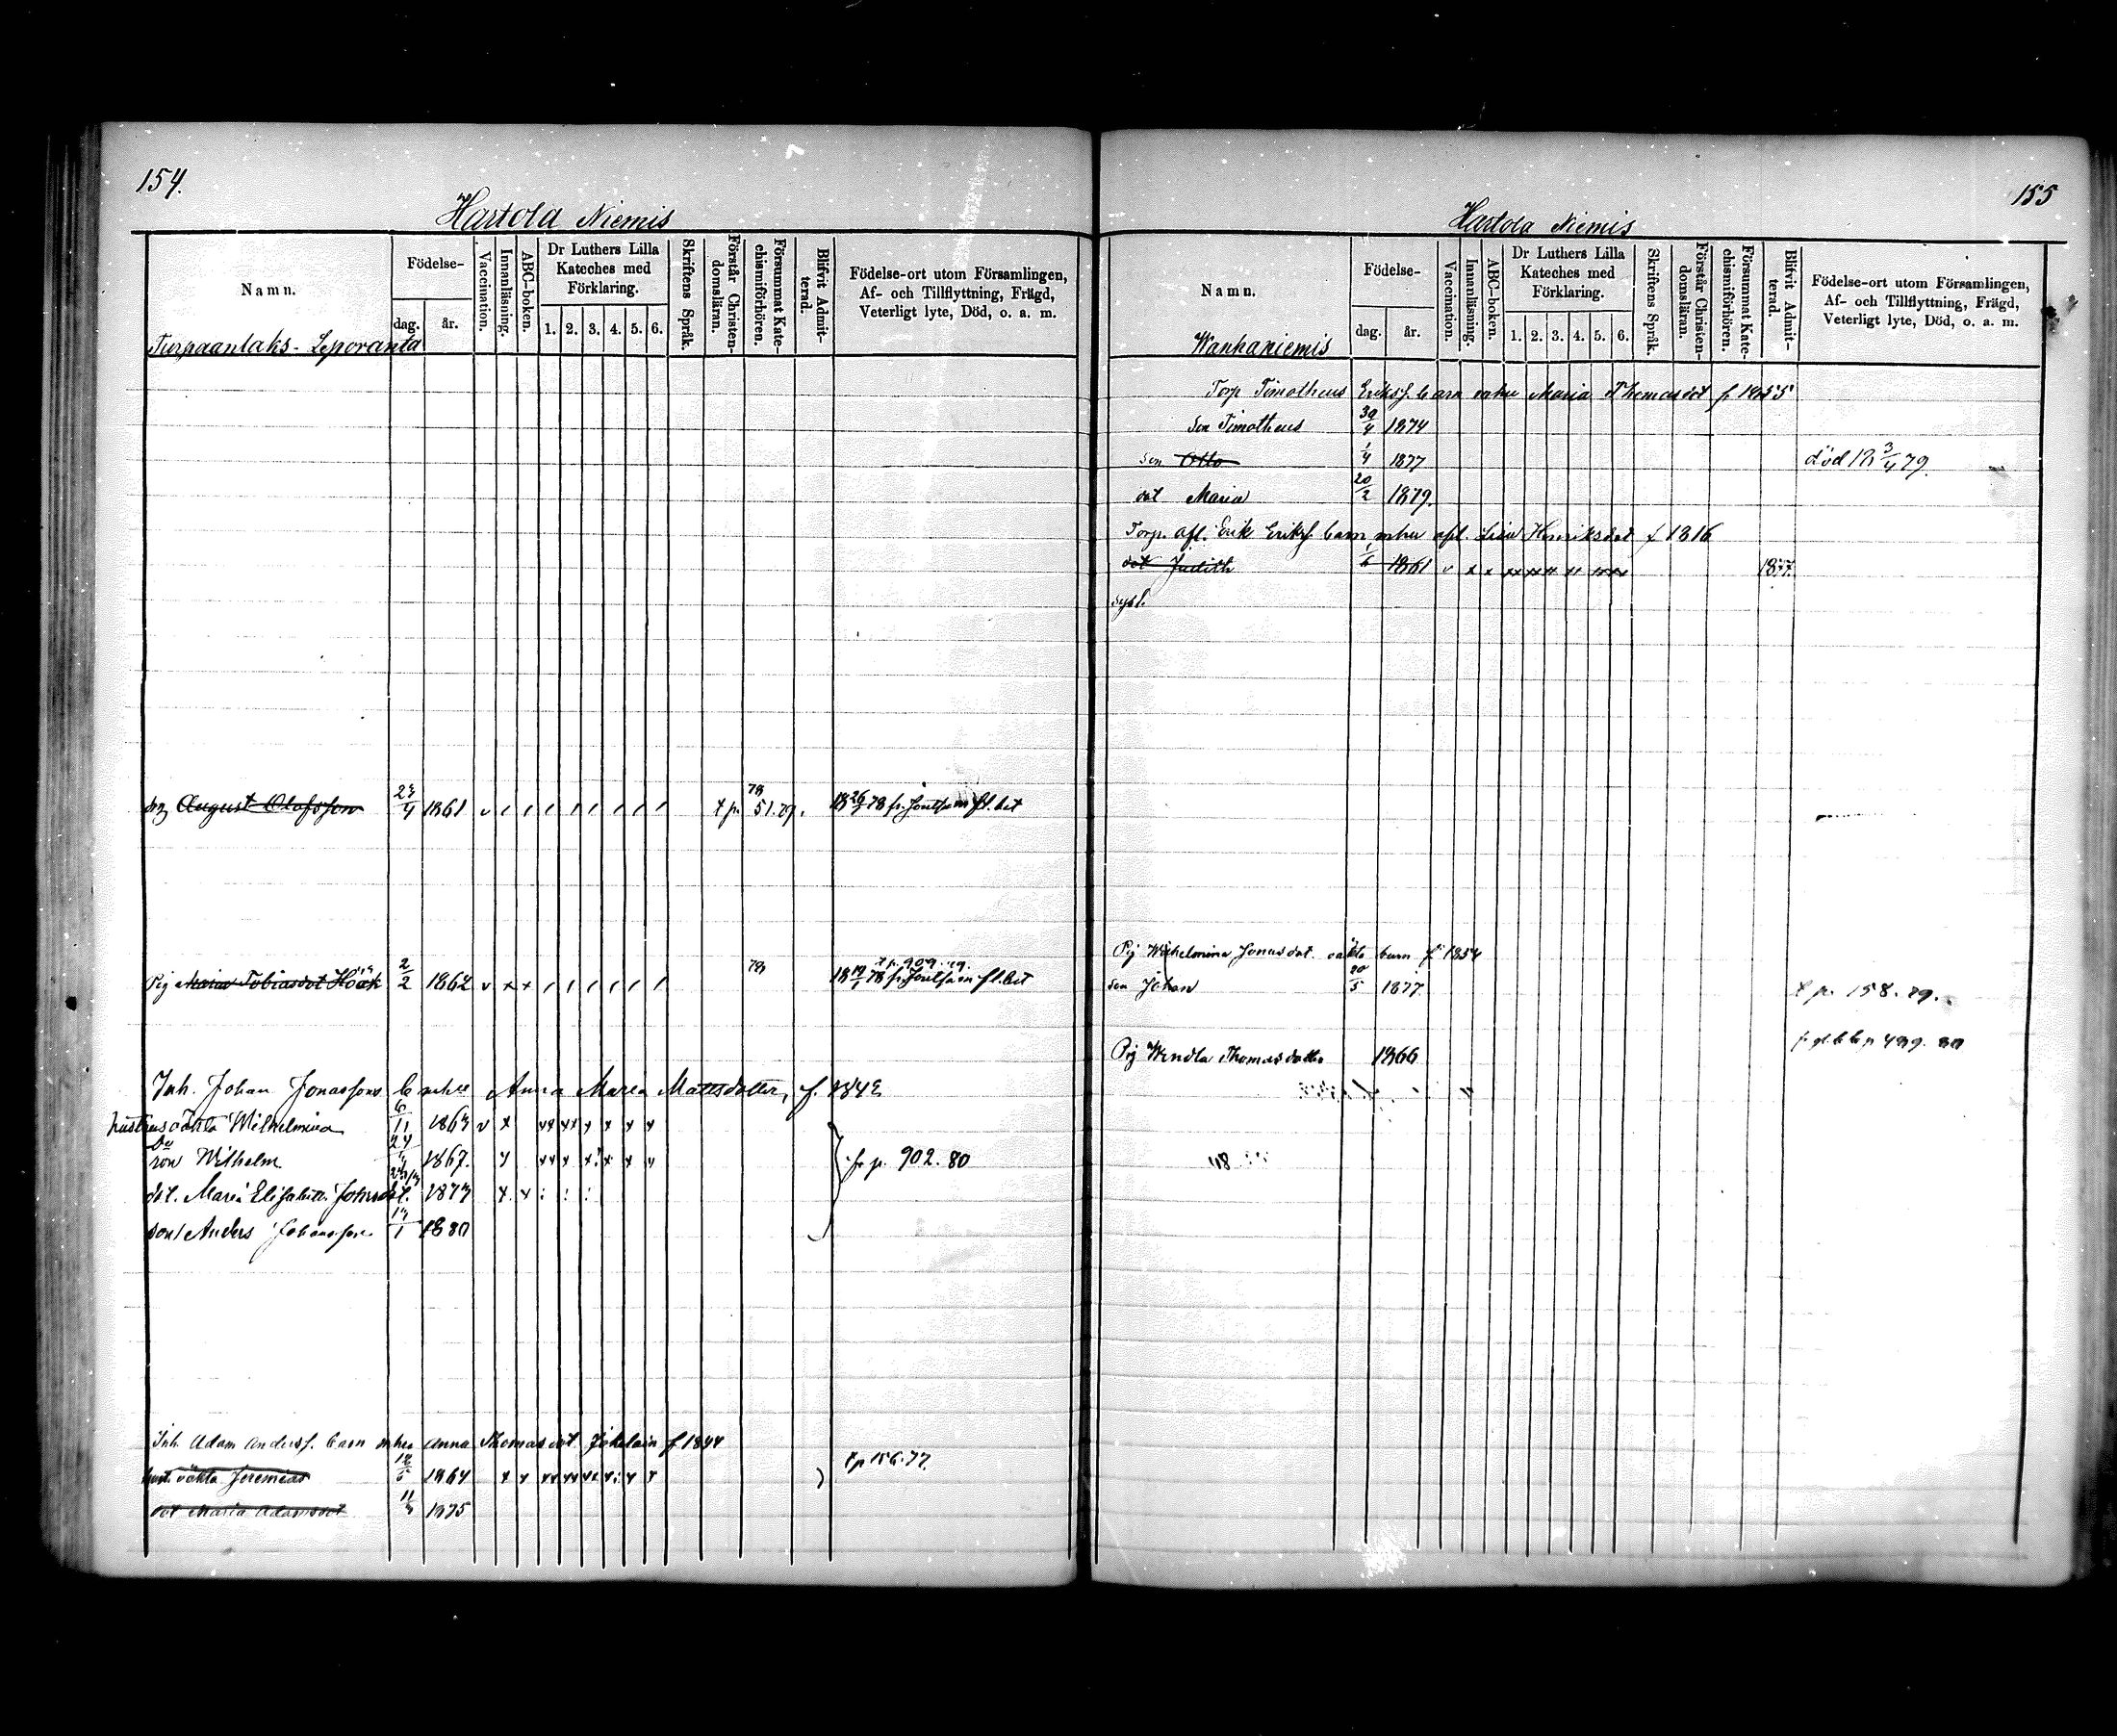 154.
Hartola Niemis
Namn.
Födelse-
dag.
år.
Vaccination.
Innanläsning.
ABC-boken.
Dr Luthers Lilla
Kateches med
Förklaring.
1. 2. 3. 4. 5. 6.
Skriftens Språk.
Förstår Christen-
domsläran.
Försummat Kate-
chismiförhören.
Blifvit Admit-
terad.
Födelse-ort utom Församlingen,
Af- och Tillflyttning, Frägd,
Veterligt lyte, Död, o. a. m.
Turpaanlaks- Leporanta
August Olofsson 23/4 1861 v t p. 51.79. 78 18 26/2 78 fr. Joutsa m fl. bet
t p. 909. 79.
Pig Maria Tobiasdot Höök 2/2 1862 v x x 78 18 19/1 78 fr. Joutsa m fl. bet
Inh. Johan Jonassons b mhu Anna Maria Mattsdotter, f. 1842
hustruns oäkta Wilhelmina 6/11 1863 v x
Do
son Wilhelm 24 1867. fr p. 902. 80
dot. Maria Elisabeth 1873
son Anders Johansson 13/1 1880
Inh. Adam Andersf. barn mhu Anna Thomasdot. Jokelain f 1844
oäkta Jeremias 12/5 1864 t p 156.77.
dot Maria Adamsdot 11/3 1875
155
Hartola Niemis
Namn.
Födelse-
dag.
år.
Vaccination.
Innanläsning.
ABC-boken.
Dr Luthers Lilla
Kateches med
Förklaring.
1. 2. 3. 4. 5. 6.
Skriftens Språk.
Förstår Christen-
domsläran.
Försummat Kate-
chismiförhören.
Blifvit Admit-
terad.
Födelse-ort utom Församlingen,
Af- och Tillflyttning, Frägd,
Veterligt lyte, Död, o. a. m.
Wanhaniemis
Torp Timotheus Eriksf. barn mhu Maria Thomasdot f 1855
son Timotheus 30/4 1874
son Otto 1/4 1877 död 18 3/4 79.
dot Maria 20/2 1879.
Torp. afl. Erik Eriksf. barn mhu afl. Lisa Henriksdot f 1816
dot Judith 1/6 1861 v x x 1877.
Pig Wilhelmina Jonasdot. oäkta barn f 1854
son Johan 20/5 1877 t p. 158. 79.
Pig Wendla Thomasdotter 1866 489. 80